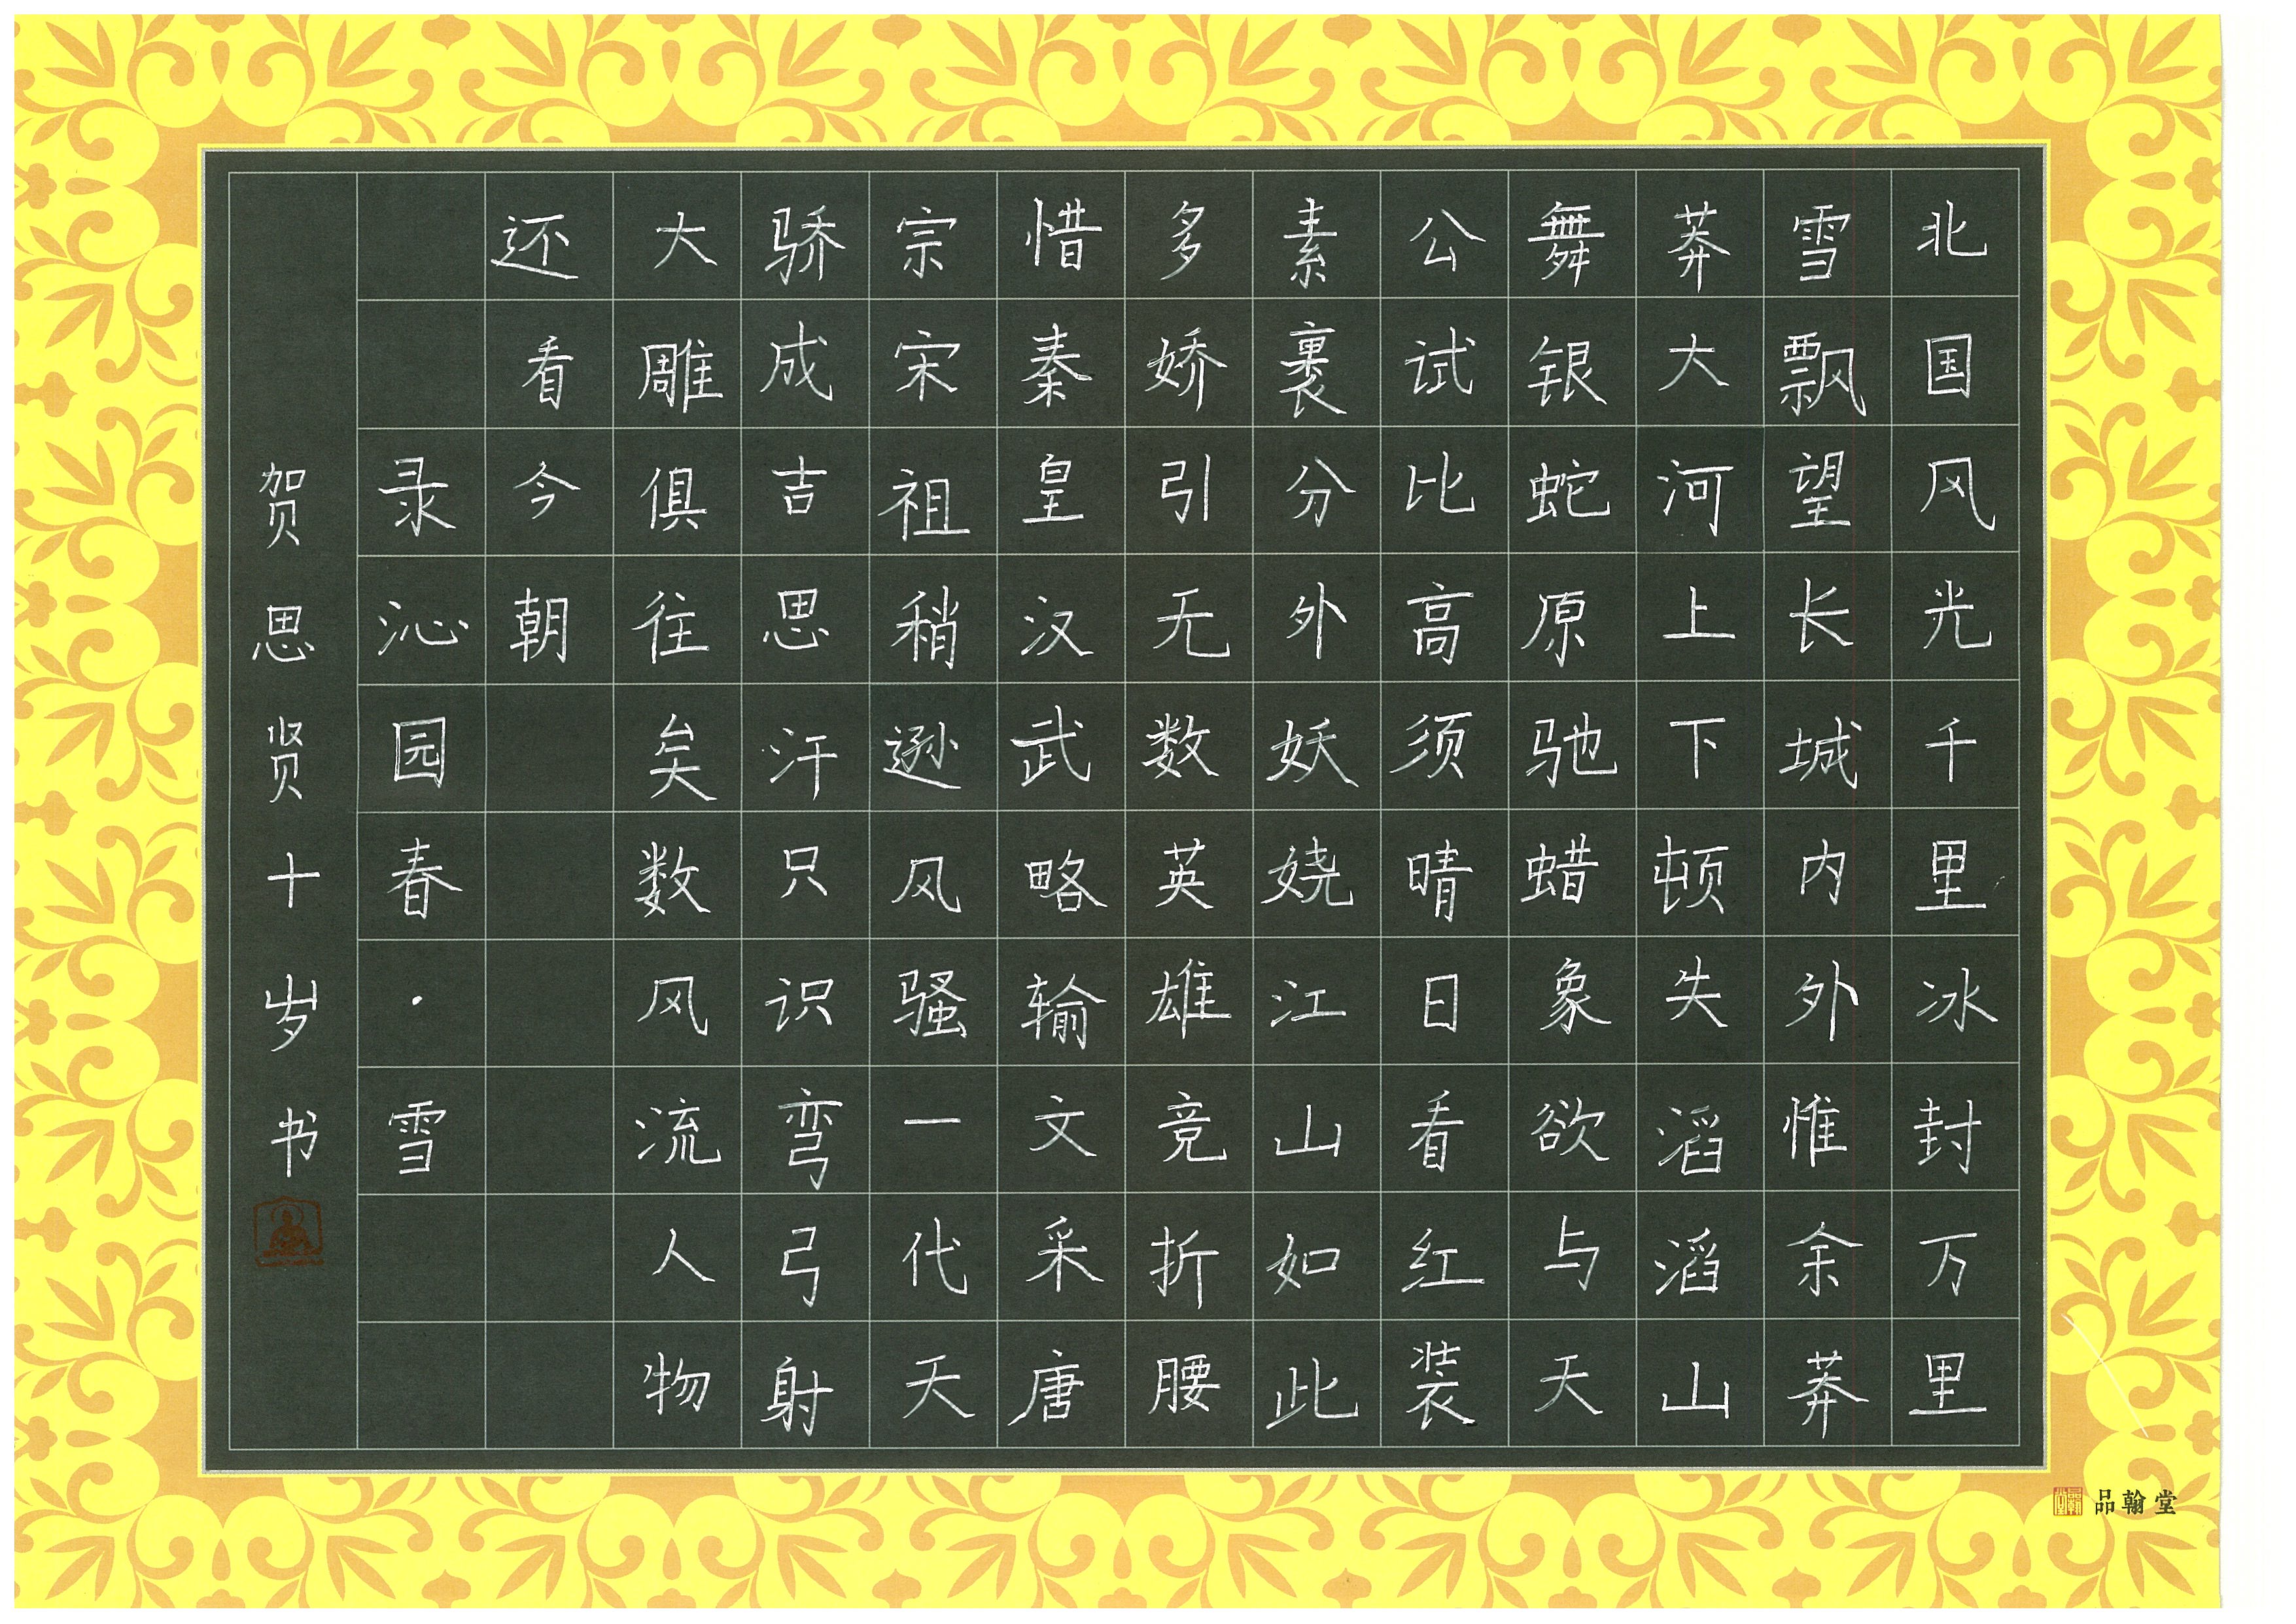 北国风光千里冰封万里
雪飘望长城内外惟余莽
莽大河上下顿失滔滔山
舞银蛇原驰蜡象欲与天
公试比高须晴日看红装
素裹分外妖娆江山如此
多娇引无数英雄竞折腰
惜秦皇汉武略输文采唐
宗宋祖稍逊风骚一代天
骄成吉思汗只识弯弓射
大雕俱往矣数风流人物
还看今朝
录沁园春·雪
贺思贤十岁书
品翰堂